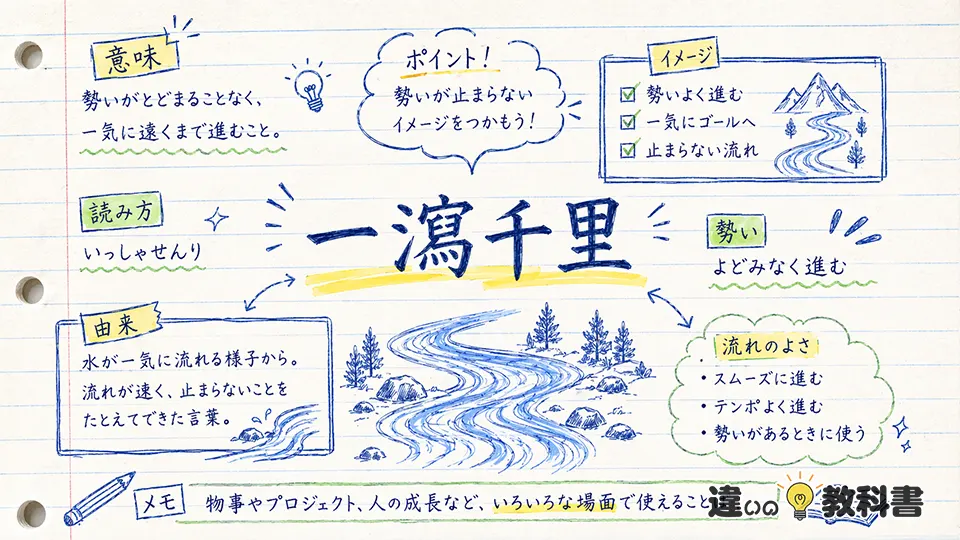 意味
勢いがとどまることなく、
一気に遠くまで進むこと。
ポイント!
勢いが止まらない
イメージをつかもう!
イメージ
勢いよく進む
一気にゴールへ
止まらない流れ
読み方
いっしゃせんり
一瀉千里
勢い
よどみなく進む
由来
水が一気に流れる様子から。
流れが速く、止まらないことを
たとえてできた言葉。
流れのよさ
・スムーズに進む
・テンポよく進む
・勢いがあるときに使う
メモ
物事やプロジェクト、人の成長など、いろいろな場面で使えること
違いの教科書